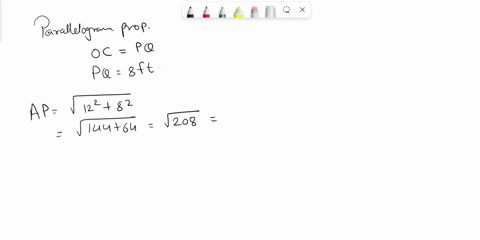 Parallelogram prop.
OC = PQ
PQ = 8ft
AP = √12² + 8²
= √144+64 = √208 =